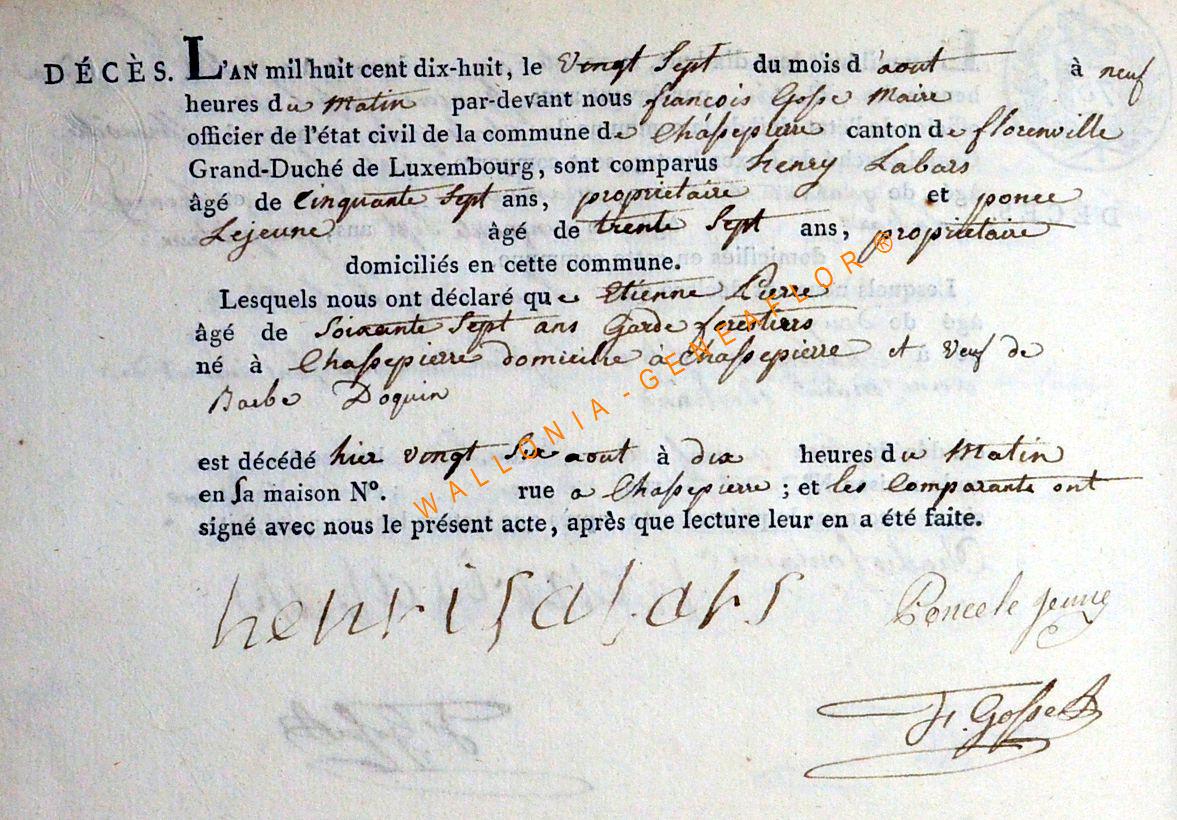 DÉCÈS. L'AN mil huit cent dix-huit, le Vingt Sept du mois d'aout à neuf
heures du Matin par-devant nous françois Gosse Maire
officier de l'état civil de la commune de Chassepierre canton de florenville
Grand-Duché de Luxembourg, sont comparus henry Labars
âgé de Cinquante Sept ans, proprietaire et ponce
Lejeune âgé de trente Sept ans, proprietaire
domiciliés en cette commune.
Lesquels nous ont déclaré que Etienne Pierre
âgé de Soixante Sept ans Garde forestiers
né à Chassepierre domicilié à Chassepierre et Veuf de
Barbe Doquin
est décédé hier vingt Six aout à dix heures du Matin
en sa maison N°. rue a Chassepierre ; et les Comparants ont
signé avec nous le présent acte, après que lecture leur en a été faite.
henri labars Ponce le jeune
fr. Gosse
WALLONIA - GENEAFLOR ®